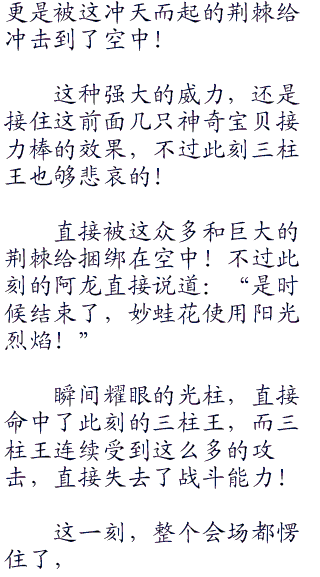 更是被这冲天而起的荆棘给
冲击到了空中！
这种强大的威力，还是
接住这前面几只神奇宝贝接
力棒的效果，不过此刻三柱
王也够悲哀的！
直接被这众多和巨大的
荆棘给捆绑在空中！不过此
刻的阿龙直接说道：“是时
候结束了，妙蛙花使用阳光
烈焰！”
瞬间耀眼的光柱，直接
命中了此刻的三柱王，而三
柱王连续受到这么多的攻
击，直接失去了战斗能力！
这一刻，整个会场都愣
住了，